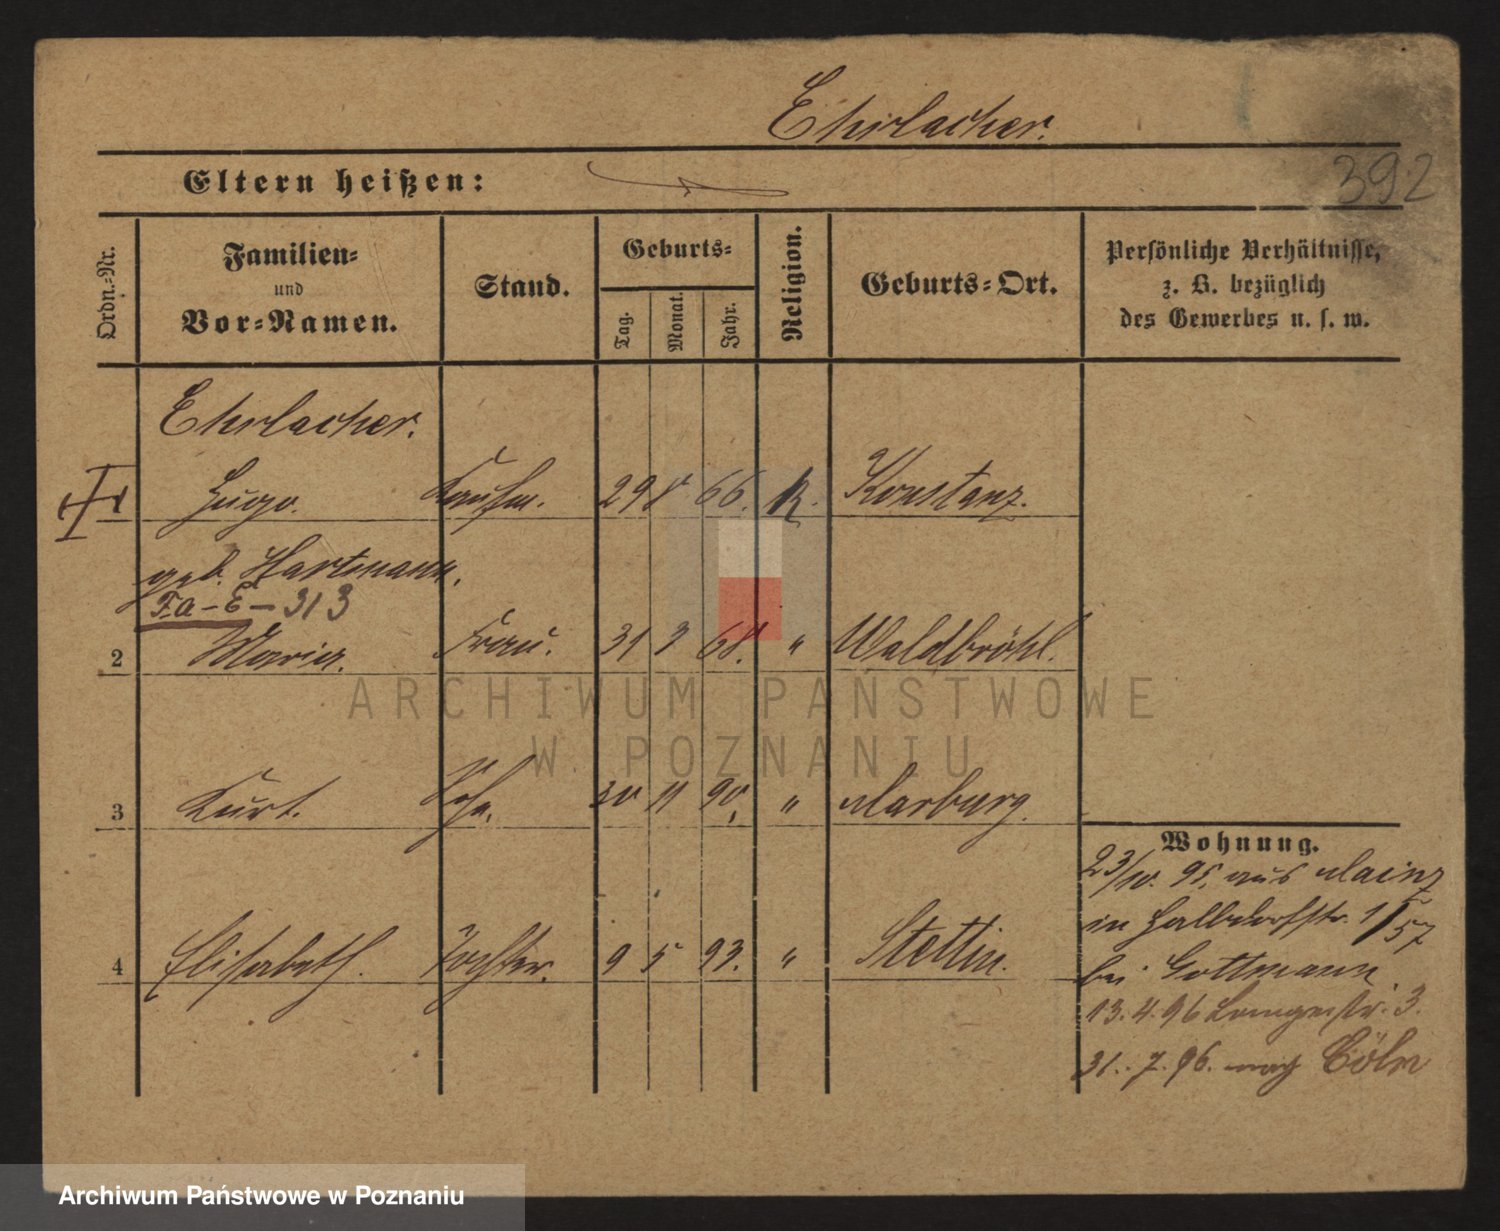 Ehrlacher.
392
Eltern heißen:
Ordn.-Nr.
Familien-
und
Vor-Namen.
Stand.
Geburts-
Tag.
Monat.
Jahr.
Religion.
Geburts-Ort.
Persönliche Verhältnisse,
z. B. bezüglich
des Gewerbes u. s. w.
Ehrlacher.
Hugo. Kaufm. 29 8 66. k. Konstanz.
geb. Hartmann.
Fa-E-313
2 Maria. Frau. 31 3 68. " Waldbröhl.
3 Kurt. Sohn. 30 11 90. " Marburg.
4 Elisabeth. Tochter. 9 5 93. " Stettin.
Wohnung.
23/10. 95. aus Mainz
in Halbdorfstr. 1/57
bei Gottmann
13.4.96 Langestr. 3.
31.7.96. nach Cöln
ARCHIWUM PAŃSTWOWE
W POZNANIU
Archiwum Państwowe w Poznaniu